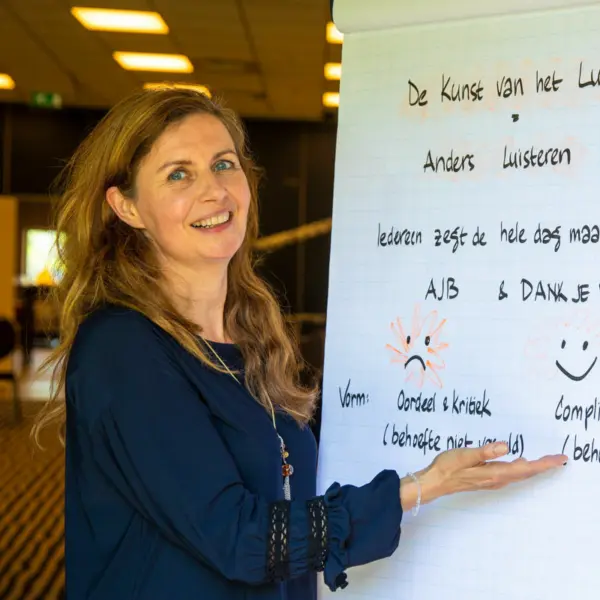 De Kunst van het
=
Anders Luisteren
Iedereen zegt de hele dag
AJB & DANK JE
Vorm: Oordeel & Kritiek
(behoefte niet